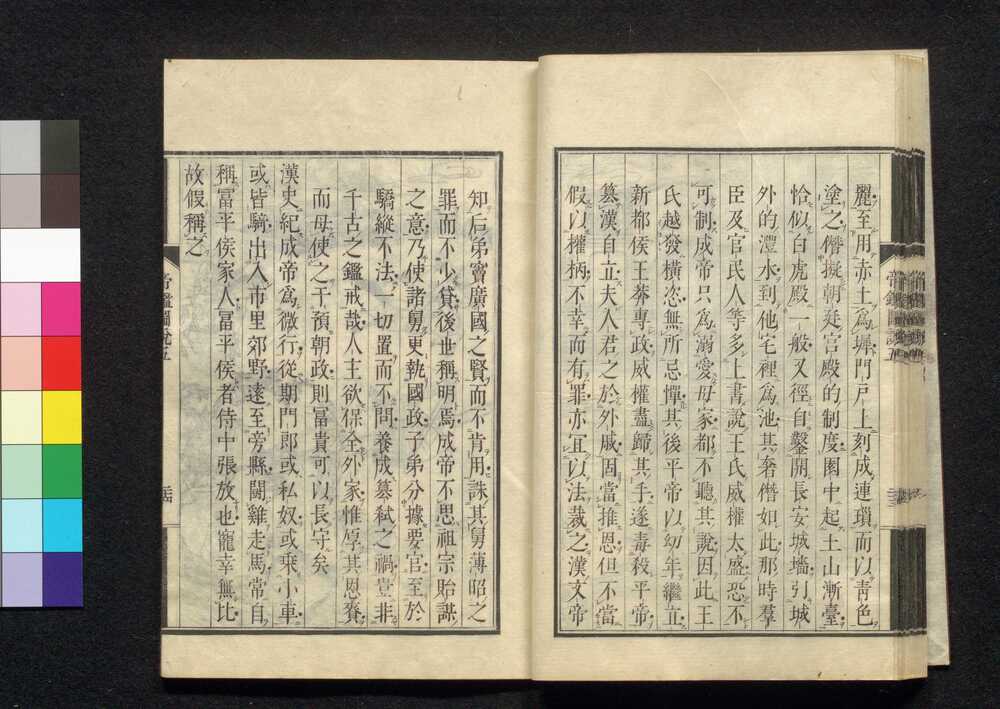 麗至用赤土爲墀門戸上刻成連瑣而以青色
塗之僭擬朝廷宮殿的制度園中起土山漸臺
恰似白虎殿一般又徑自鑿開長安城墻引城
外的灃水到他宅裡爲池其奢僭如此那時羣
臣及官民人等多上書說王氏威權太盛恐不
可制成帝只爲溺愛母家都不聽其說因此王
氏越發橫恣無所忌憚其後平帝以幼年繼立
新都侯王莽專政威權盡歸其手遂毒殺平帝
簒漢自立夫人君之於外戚固當推恩但不當
假以權柄不幸而有罪亦宜以法裁之漢文帝
知后弟竇廣國之賢而不肯用誅其舅薄昭之
罪而不少貸後世稱明焉成帝不思祖宗貽謀
之意乃使諸舅更執國政子弟分據要官至於
驕縱不法一切置而不問養成簒弑之禍豈非
千古之鑑戒哉人主欲保全外家惟厚其恩賚
而毋使之干預朝政則冨貴可以長守矣
漢史紀成帝爲微行從期門郎或私奴或乘小車
或皆騎出入市里郊野遠至旁縣闘雞走馬常自
稱冨平侯家人冨平侯者侍中張放也寵幸無比
故假稱之
帝鑑圖說五